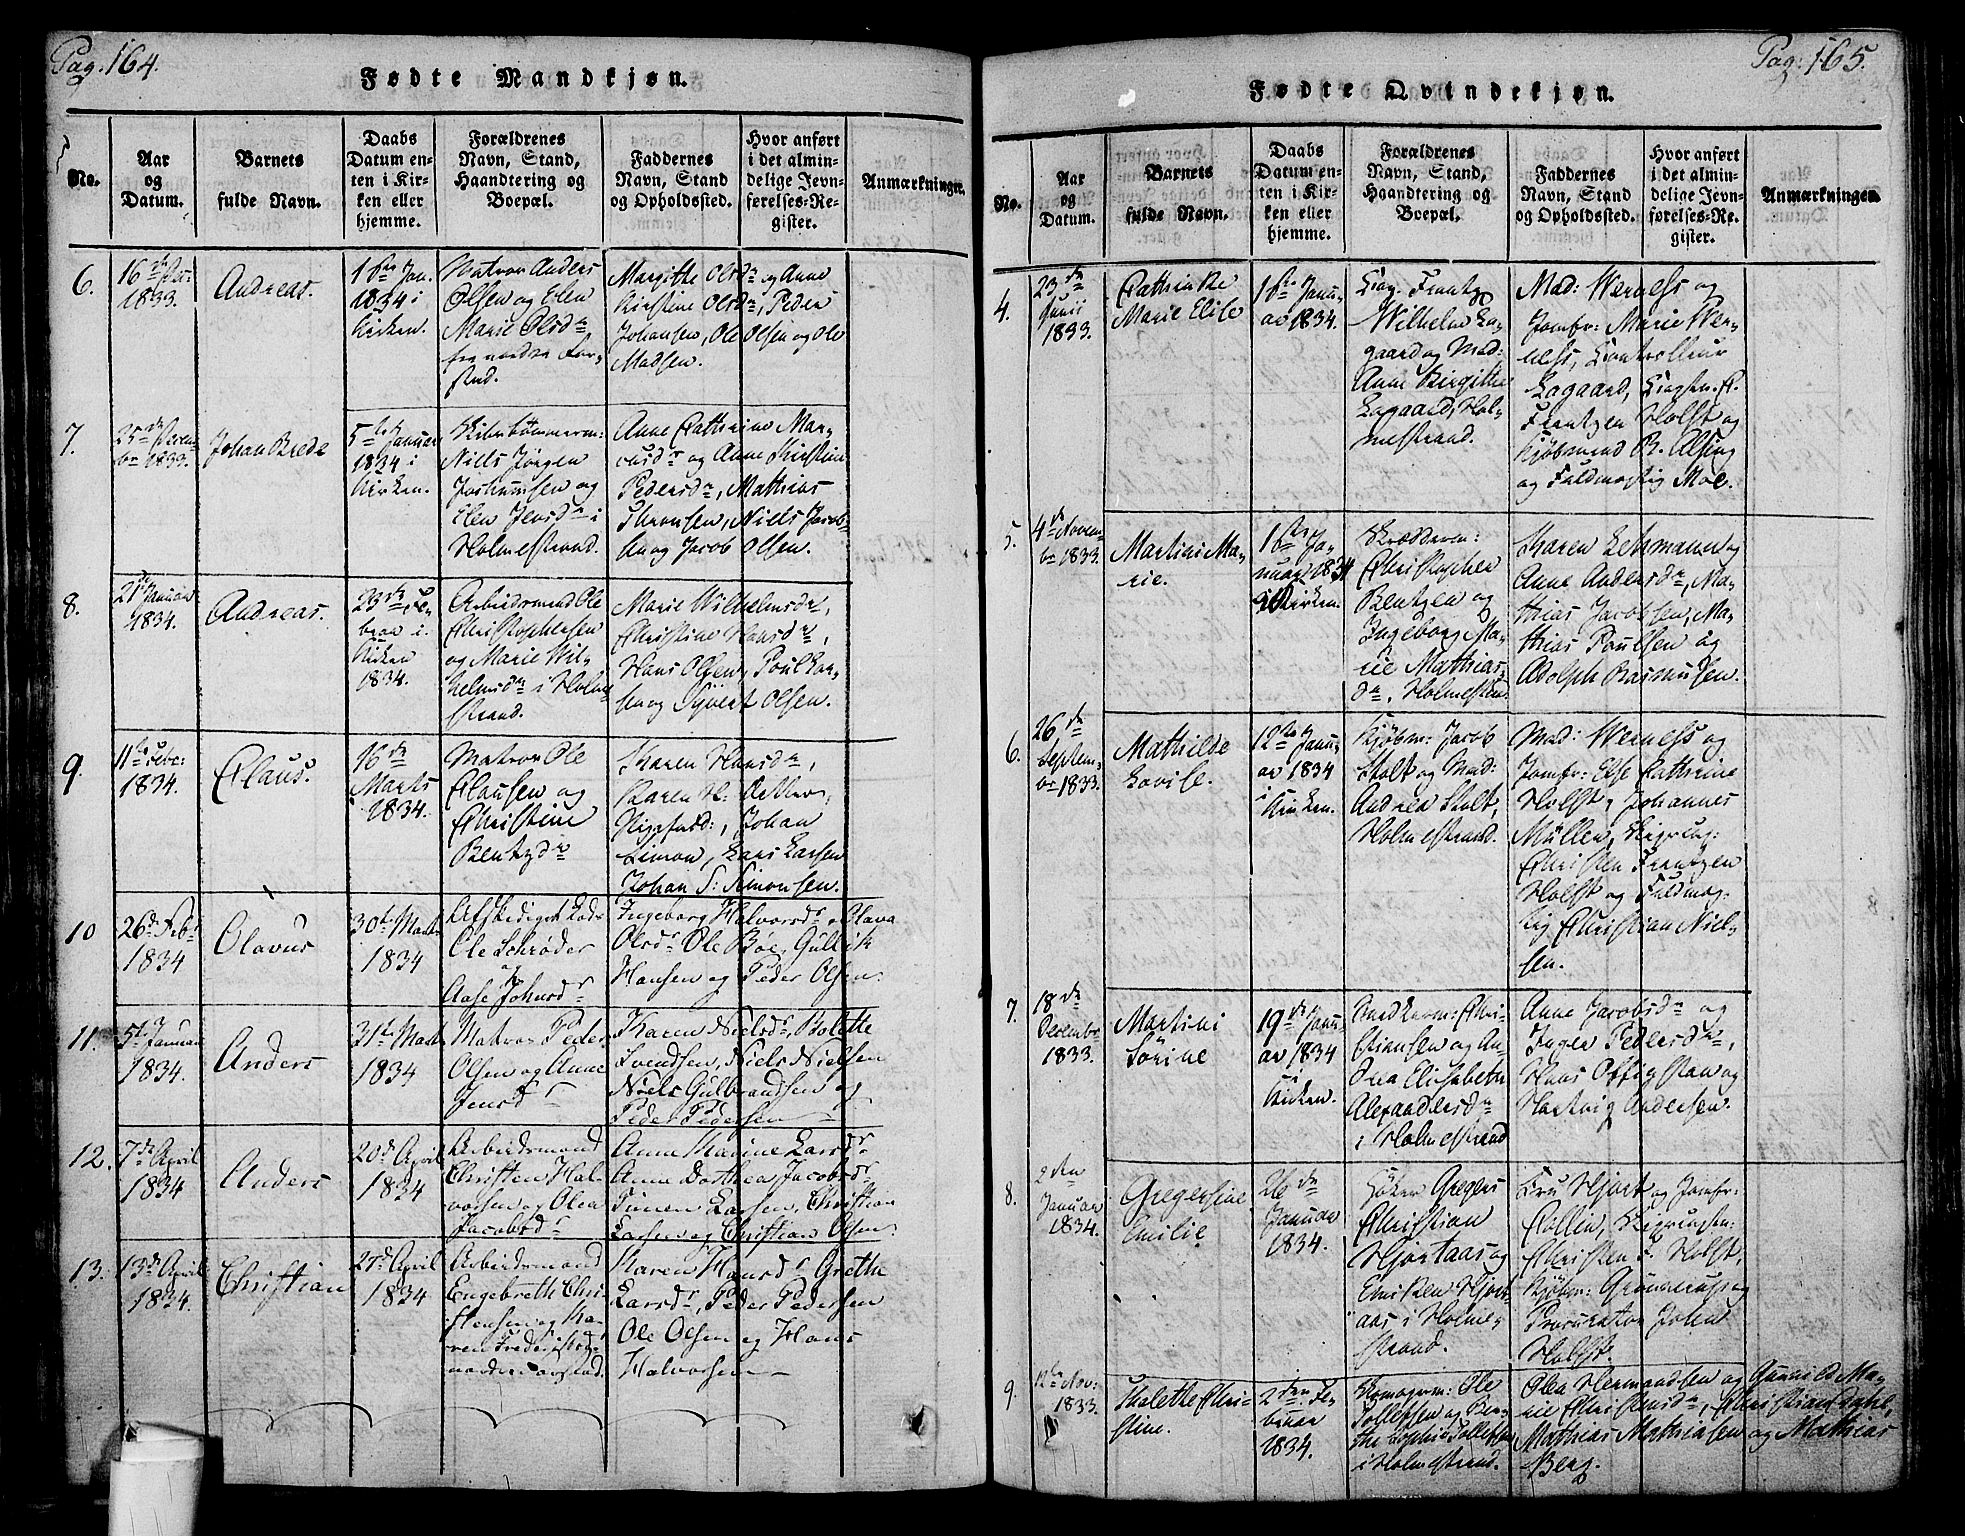 Pag. 164.
Fødte Mandkjøn.
No.
Aar og Datum.
Barnets fulde Navn.
Daabs Datum enten i Kirken eller hjemme.
Forældrenes Navn, Stand, Haandtering og Boepæl.
Faddernes Navn, Stand og Opholdssted.
Hvor anført i det almindelige Jevnførelses-Register.
Anmærkninger.
6.
1833.
Andreas.
1834 i
Kirken.
Matros Anders
Olsen og Elen
Marie Olsdr
Margithe Olsdr og Anne
Kirstine Olsdr, Peder
Johansen, Ole Olsen og Ole
Madsen.
7.
25de Decem-
br 1833.
Johan Brede
5te Januar
1834 i
Kirken.
Niels Jørgen
Jochumsen og
Elen Jensdr i
Holmestrand.
Anne Cathrine Mar-
cusdr og Anne Kirstine
Pedersdr, Mathias
Niels Jacob-
sen og Jacob Olsen.
8.
21de Januar
1834.
Andreas.
23de Fe-
bruar i
Kirken
1834.
Arbeidsmand Ole
Christophersen
og Marie Wil-
helmsdr i Holme-
strand.
Marie Wilhelmsdr,
Christine Hansdr,
Hans Olsen, Poul Lar-
sen og Syvert Olsen.
9.
11te Febr.
1834.
Claus.
16de
Marts
1834.
Matros Ole
Clausen og
Christine
Bentzdr
Karen Hansdr,
Johan
Simon, Lars Larsen
Johan S: Simonsen.
10
26d Febr
1834
Olavus
30te Marts
1834
Afskediget Lods
Ole Schrøder
og
Aase Johnsdr
Ingeborg Halvorsdr, Olava
Olsdr Ole Bøe, Gullik
Hansen og Peder Olsen.
11.
5te Januar
1834.
Anders
31te Marts
1834
Matros Peder
Olsen og Anne
Jensdr
Karen Nielsdr, Bolette
Svendsen, Niels Nielsen
Niels Gulbrandsen og
Peder Pedersen
12.
7de April
1834
Anders
20d April
1834
Arbeidsmand
Christen Hal-
vorsen og Olea
Jacobsdr
Anne Marine Larsdr
Anne Dorthea Jacobsdr
Simen Larsen, Christian
Larsen og Christian Olsen
13.
13de April
1834.
Christian
27d April
1834
Arbeidsmand
Engebreth Chri-
stensen og Ka-
ren Fredriksdr
Karen Hansdr Grethe
Larsdr, Peder Pedersen
Ole Olsen og Hans
Halvorsen
Pag: 165.
Fødte Qvindekjøn.
No.
Aar og Datum.
Barnets fulde Navn.
Daabs Datum enten i Kirken eller hjemme.
Forældrenes Navn, Stand, Haandtering og Boepæl.
Faddernes Navn, Stand og Opholdssted.
Hvor anført i det almindelige Jevnførelses-Register.
Anmærkninger.
4.
23de
Junii
1833.
Cathinke
Marie Elise
16de Janu-
ar 1834.
Frantz
Wilhelm La-
gaard og Mad:
Anne Birgithe
Lagaard, Hol-
mestrand.
Mad: Werness og
Jomfr: Marie Wer-
ness, Controlleur
Lagaard,
Frantzen Holst og
Kjøbmend B. Alsing
og Fuldmægtig Moe.
5.
4de Novem-
br 1833.
Martine Ma-
rie.
16de Ja-
nuar 1834
i Kirken.
Christopher
Bentzen og
Ingeborg Ma-
rie Matthias-
dr, Holmestrand.
Karen Lehmann og
Anne Andersdr, Ma-
thias Jacobsen, Ma-
thias Poulsen og
Adolph Rasmussen.
6.
26de
Septem-
br 1833.
Mathilde
Lovise.
12te Janu-
ar 1834
i Kirken.
Kjøbm: Jacob
Stolt og Mad:
Andrea Stolt,
Holmestrand.
Mad: Werness og
Jomfr: Else Cathrine
Holst, Johannes
Müller,
Christen Frantzen
Holst og Fuldmæg-
tig Christian Niel-
sen.
7.
18de
Decembr
1833.
Martine
Sørine
19de Janu-
ar 1834
i Kirken.
Chri-
stiansen og An-
drea Elisabeth
Alexandersdr
i Holmestrand
Anne Jacobsdr og
Inger Pedersdr,
Hans
Hartvig Andersen.
8.
2den
Januar
1834.
Gregersine
Emilie
26de
Januar
1834.
Gregers
Christian
Hjortaas og
Hjort-
aas i Holme-
strand.
Fru Hjort og Jomfr:
Collin,
Christen F. Holst,
Kjøbm: Grønnerup og
Procurator Johan
Holst.
9.
12te Nov:
1833.
Thalette Chri-
stine.
2den Fe-
bruar
1834.
Skomagerm: Ole
Tollefsen og Ber-
the Sophie Tollefsen
i Holmestrand.
Olea Hermandsen og Gunild Ma-
rie Christensdr, Christian
Mathias Mathiesen og Mathias
Berg.